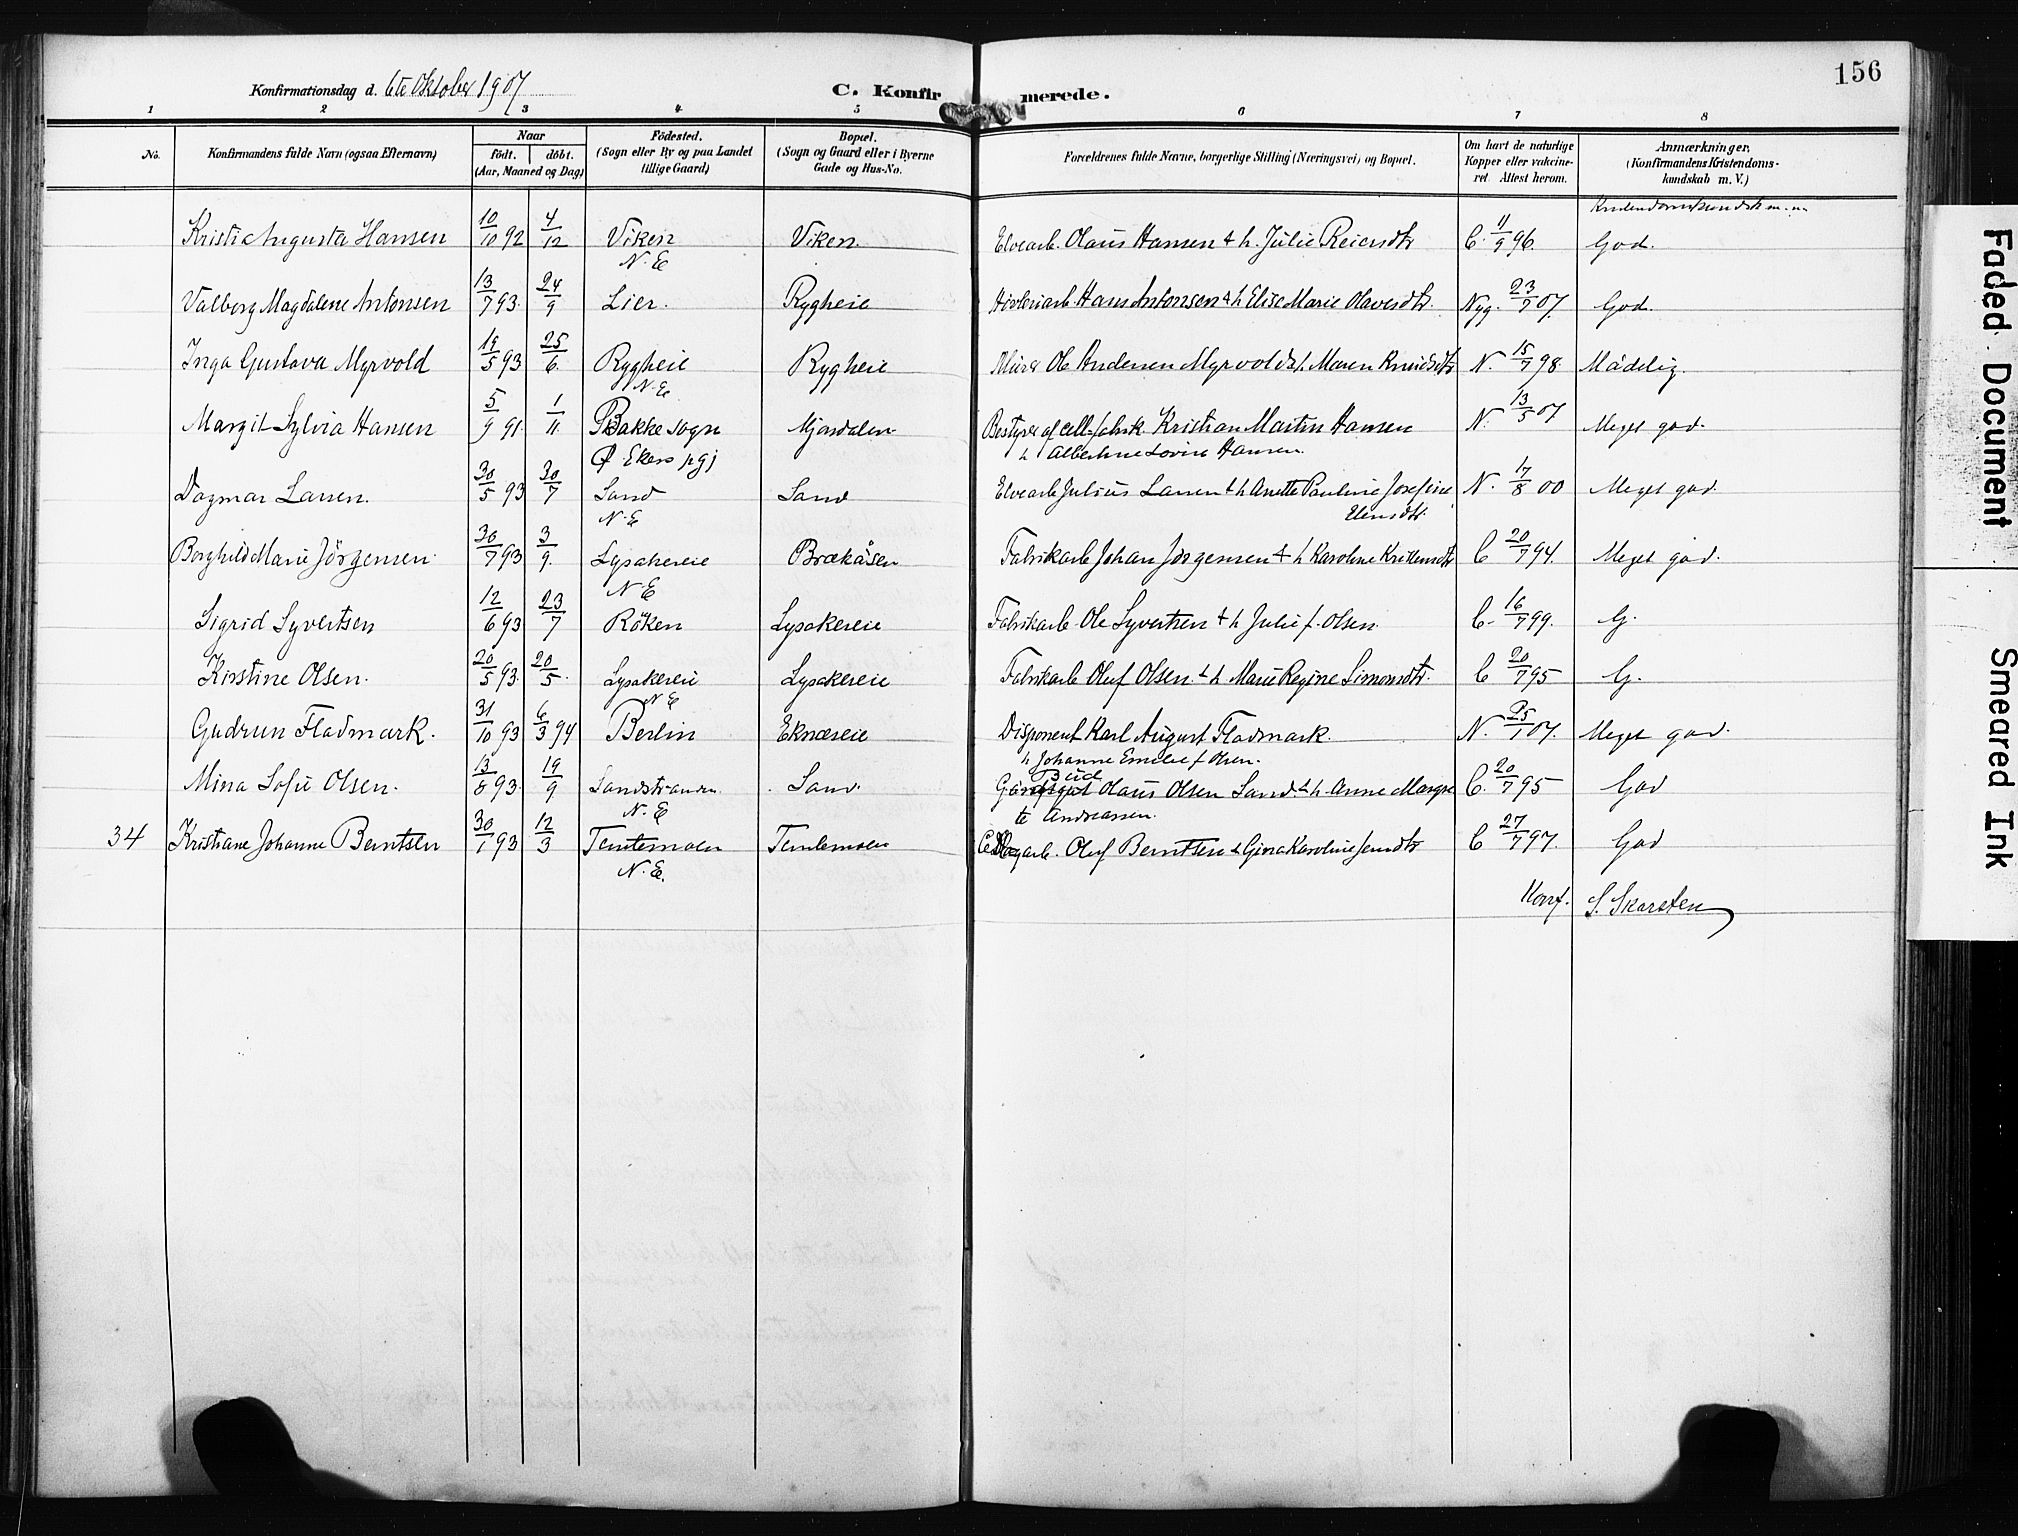 156
Konfirmationsdag d. 6te Oktober 1907
C. Konfirmerede.
1 2 3 4 5 6 7 8
No. Konfirmandens fulde Navn (ogsaa Efternavn) Naar födt. döbt. (Aar, Maaned og Dag) Födested. (Sogn eller By og paa Landet tillige Gaard) Bopæl. (Sogn og Gaard eller i Byerne Gade og Hus-No. Forældrenes fulde Navne, borgerlige Stilling (Næringsvei) og Bopæl. Om havt de naturlige Kopper eller vakcineret. Attest herom. Anmærkninger. (Konfirmandens Kristendomskundskab m. V.)
Kristendomskundsk m. m.
Kristi Augusta Hansen 10/10 92 4/12 Viken N. E Viken. Elvearb. Olaus Hansen & h. Julie Reiersdtr C. 11/9 96. God.
Valborg Magdalene Antonsen 13/7 93. 24/9 Lier. Rygheie Hövleriarb Hans Antonsen & h Elise Marie Olavesdtr. Nyg. 23/7 07. God.
Inga Gustava Myrvold 19/5 93 25/6. Rygheie N. E Rygheie Murer Ole Andersen Myrvold & h. Maren Knudsdtr N. 15/7 98. Mådelig.
Margit Sylvia Hansen 5/9 91. 1/11 Bakke sogn Ø Ekers pgj Mjøndalen Bestyrer af cell. fabrik. Kristian Martin Hansen
h Albertine Lovise Hansen.
N. 13/5 07 Meget god.
Dagmar Larsen. 30/5 93 30/7 Sand N. E Sand Elvearb Julius Larsen & h Anette Pauline Josefine
Elensdtr.
N. 17/8 00 Meget god.
Borghild Marie Jörgensen. 30/7 93 3/9. Lysakereie N E Brækåsen Fabrikarb Johan Jørgensen & h Karoline Kristensdtr C 20/7 94. Meget god.
Sigrid Syvertsen 12/6 93 23/7 Röken Lysakereie Fabrikarb Ole Syvertsen & h Julie f. Olsen. C. 16/7 99. G.
Kirstine Olsen. 20/5 93. 20/5. Lysakereie N E Lysakereie Fabrikarb Oluf Olsen. & h Marie Regine Simonsdtr. C 20/7 95 G.
Gudrun Fladmark. 31/10 93 6/3 94 Berlin Eknæseie Disponent Karl August Fladmark.
h Johanne Emelie f Olsen.
N. 25/1 07. Meget god.
Mina Sofie Olsen. 13/8 93. 19/9 Sandstranden N. E Sand. Bud Olaus Olsen Sand & h Anne Margre
te Andreassen.
C. 20/7 95 God
34 Kristiane Johanne Berntsen 30/1 93 12/3 Temtemoen N. E. Temtemoen arb. Oluf Berntsen & Gina Karoline Jensdtr C 27/7 97. God
Konf. S. Skarsten
Faded Document
Smeared Ink